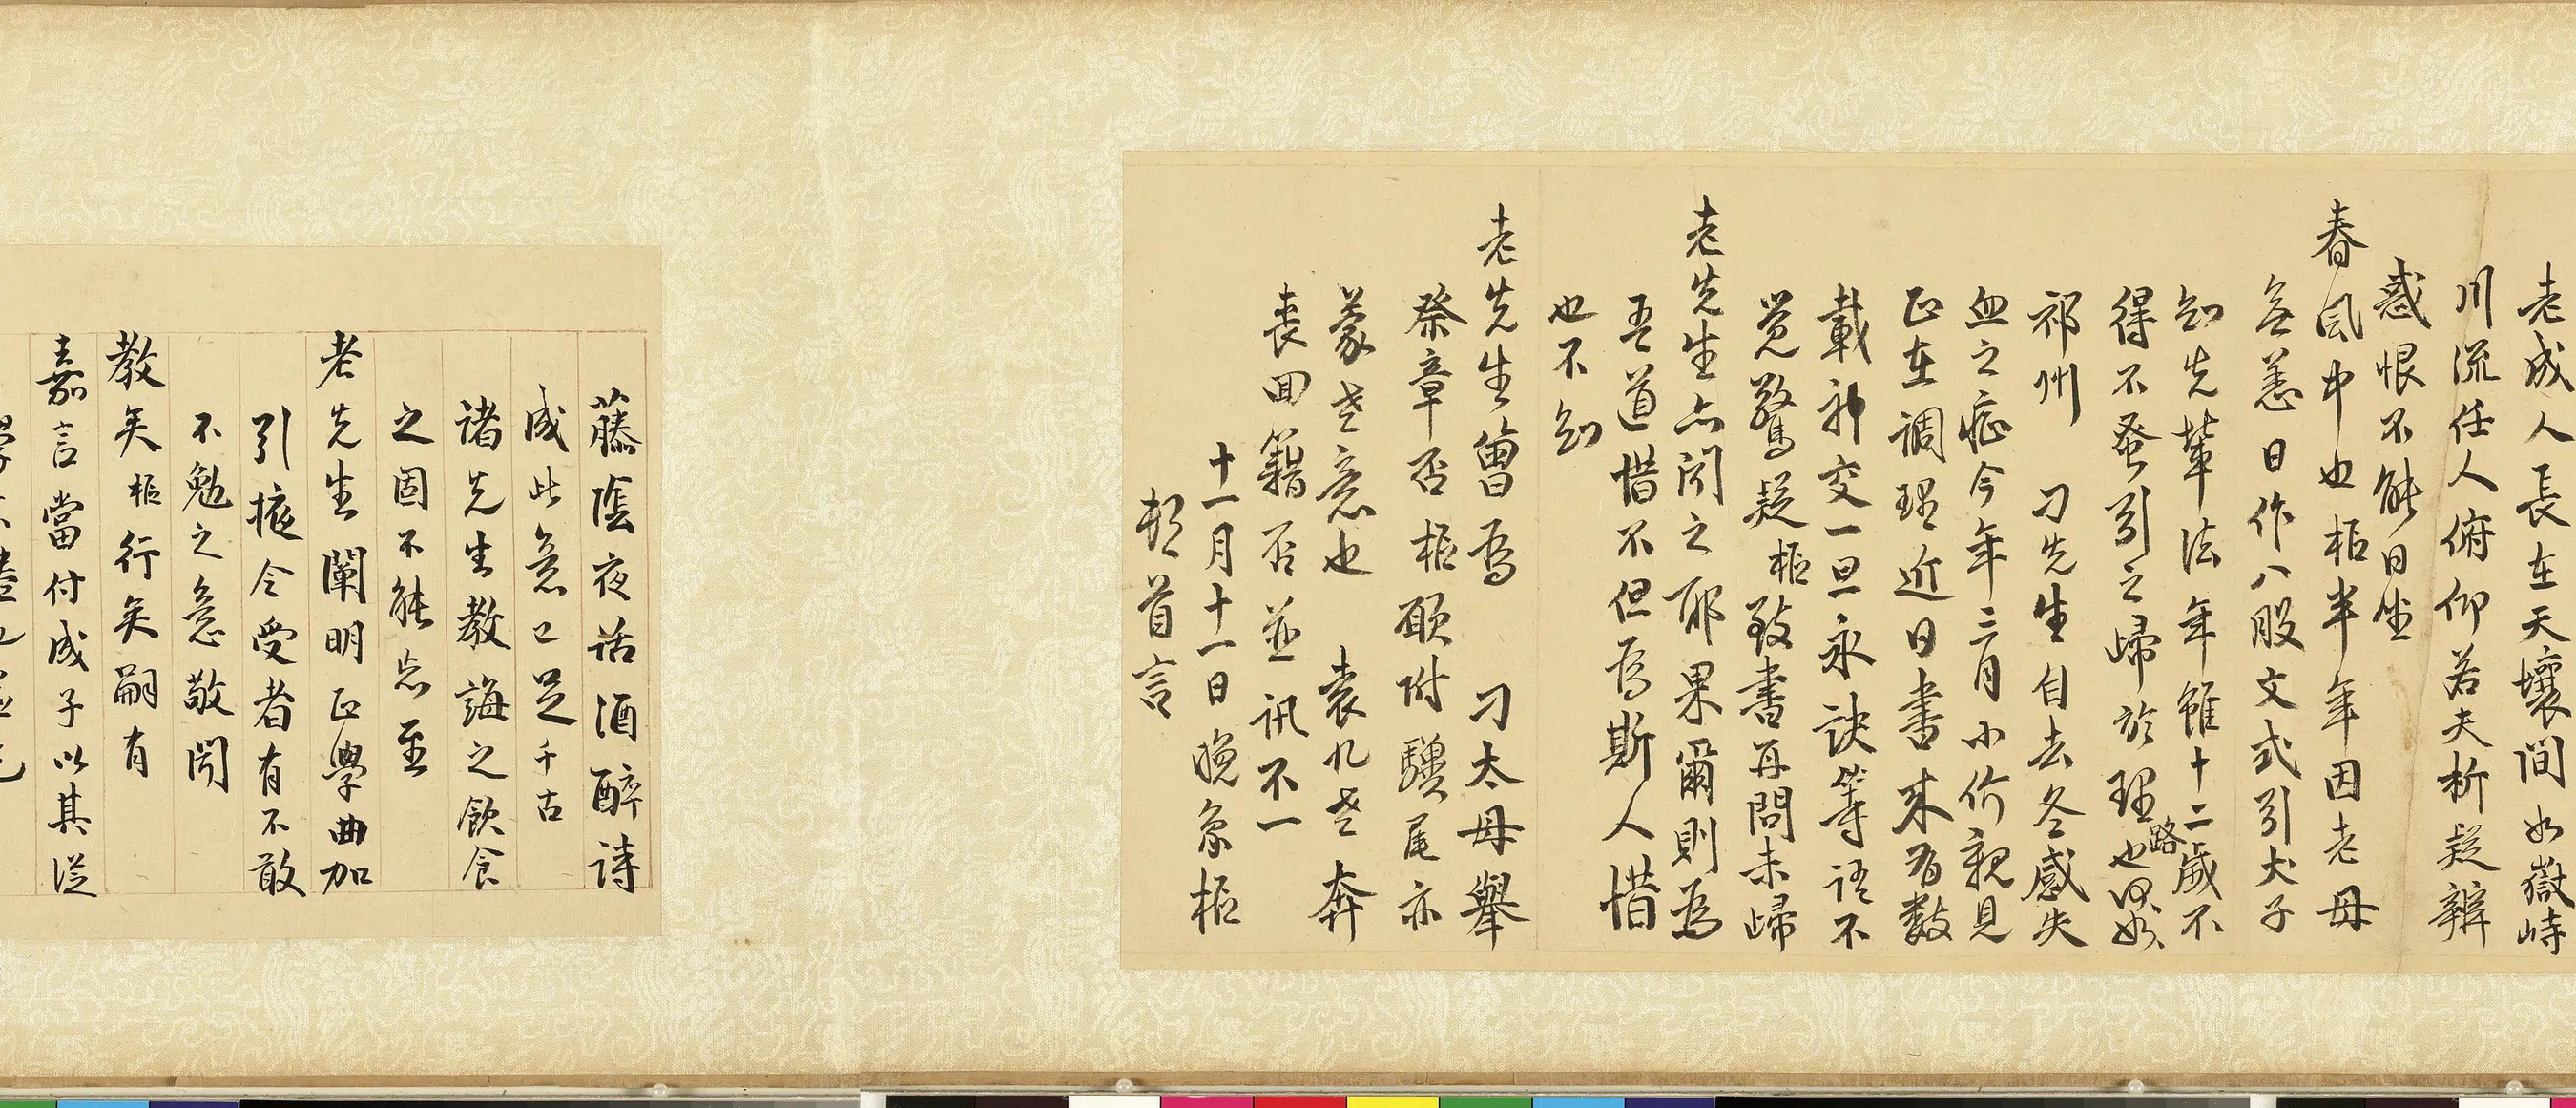 老成人長在天壤間如嶽峙
川流任人俯仰若夫析疑辨
惑恨不能日坐
春風中也柜半年因老母
無恙日作八股文式引犬子
知先輩法年雖十二歲不
得不蚤引之歸於理路也何如
祁州 刁先生自去冬感失
血之症今年三月小价親見
正在調理近日書來有數
載神交一旦永訣等語不
覺驚疑柜致書再問未歸
老先生亦聞之耶果爾則為
吾道惜不但為斯人惜
也不知
老先生曾為 刁太母舉
祭章否柜願附驥尾亦
蒙老意也 袁九老奔
喪回籍否並訊不一
十一月十一日晚京柜
頓首言
藤陰夜話酒醉詩
成此意已足千古
諸先生教誨之飲食
之固不能忘至
老先生闡明正學曲加
引掖令受者有不敢
不勉之意敬聞
教矣柜行矣嗣有
嘉言當付成子以其從